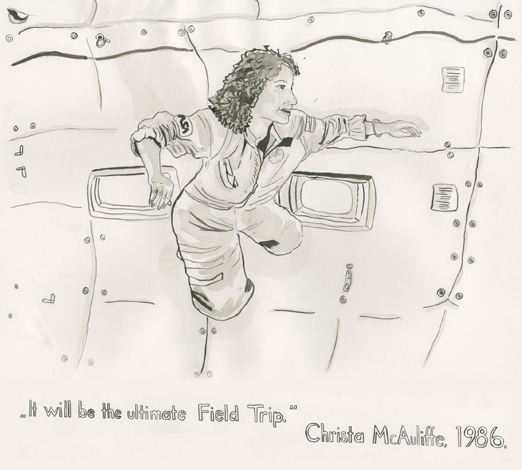 „It will be the ultimate Field Trip.“
Christa McAuliffe, 1986.